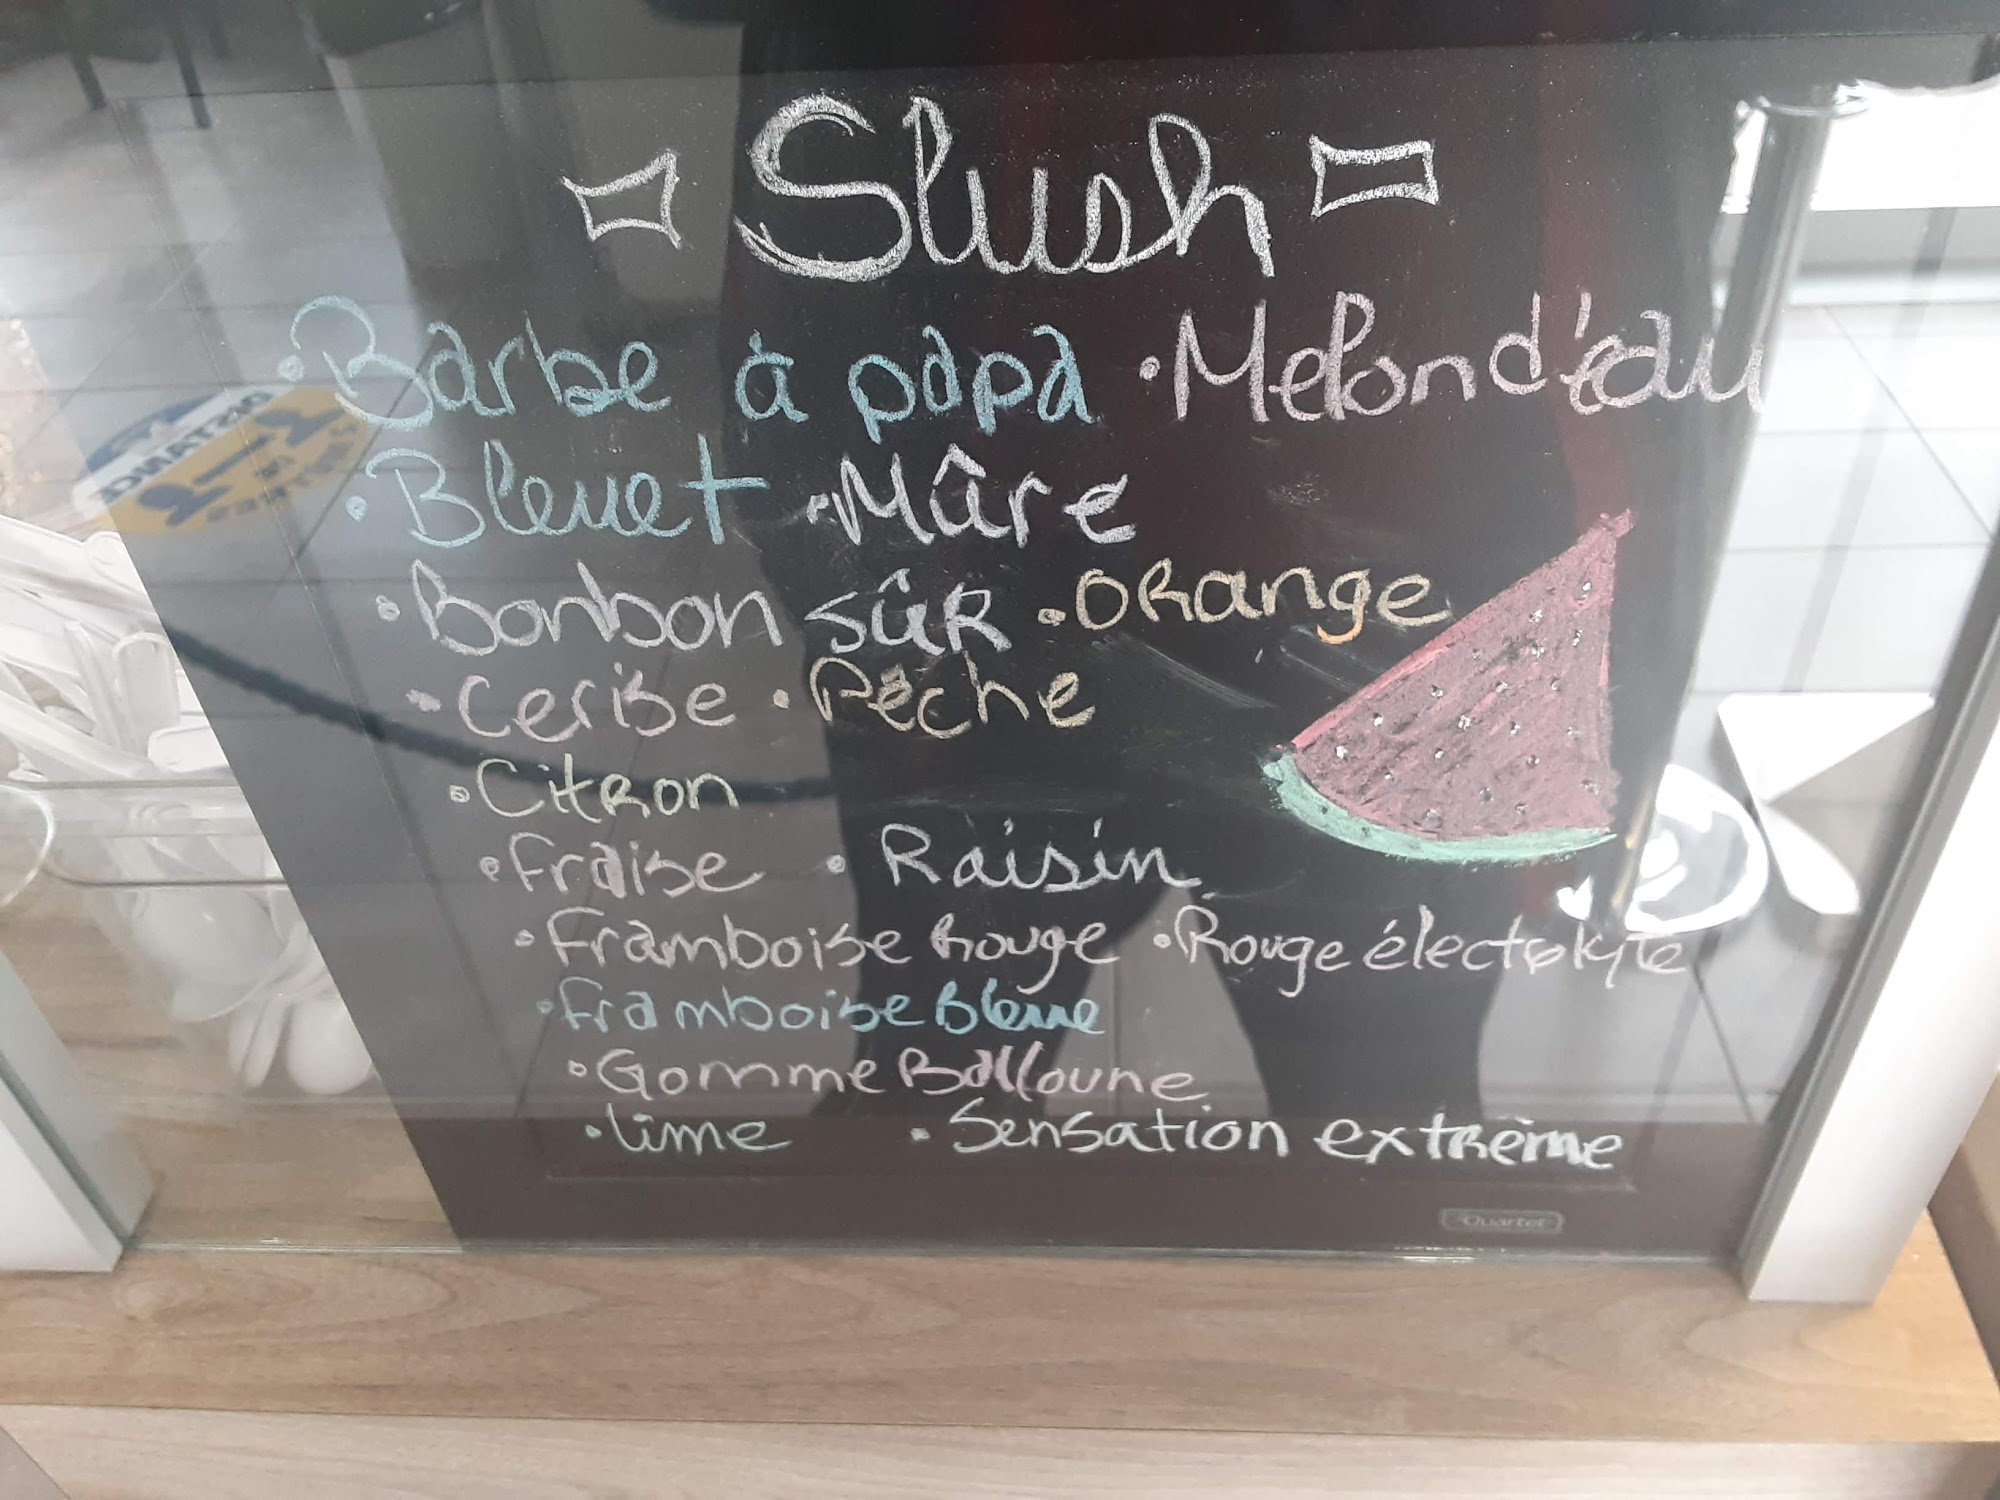 Slush
• Barbe à papa • Melon d'éau
• Bleuet • Mâre
• Bonbon sûr • Orange
• Cerise • Pêche
• Citron
• Fraise • Raisin
• Framboise Rouge • Rouge électrolyte
• Framboise Bleue
• Gomme Balloune
• lime • Sensation extrême
Quartet
DISTANCE